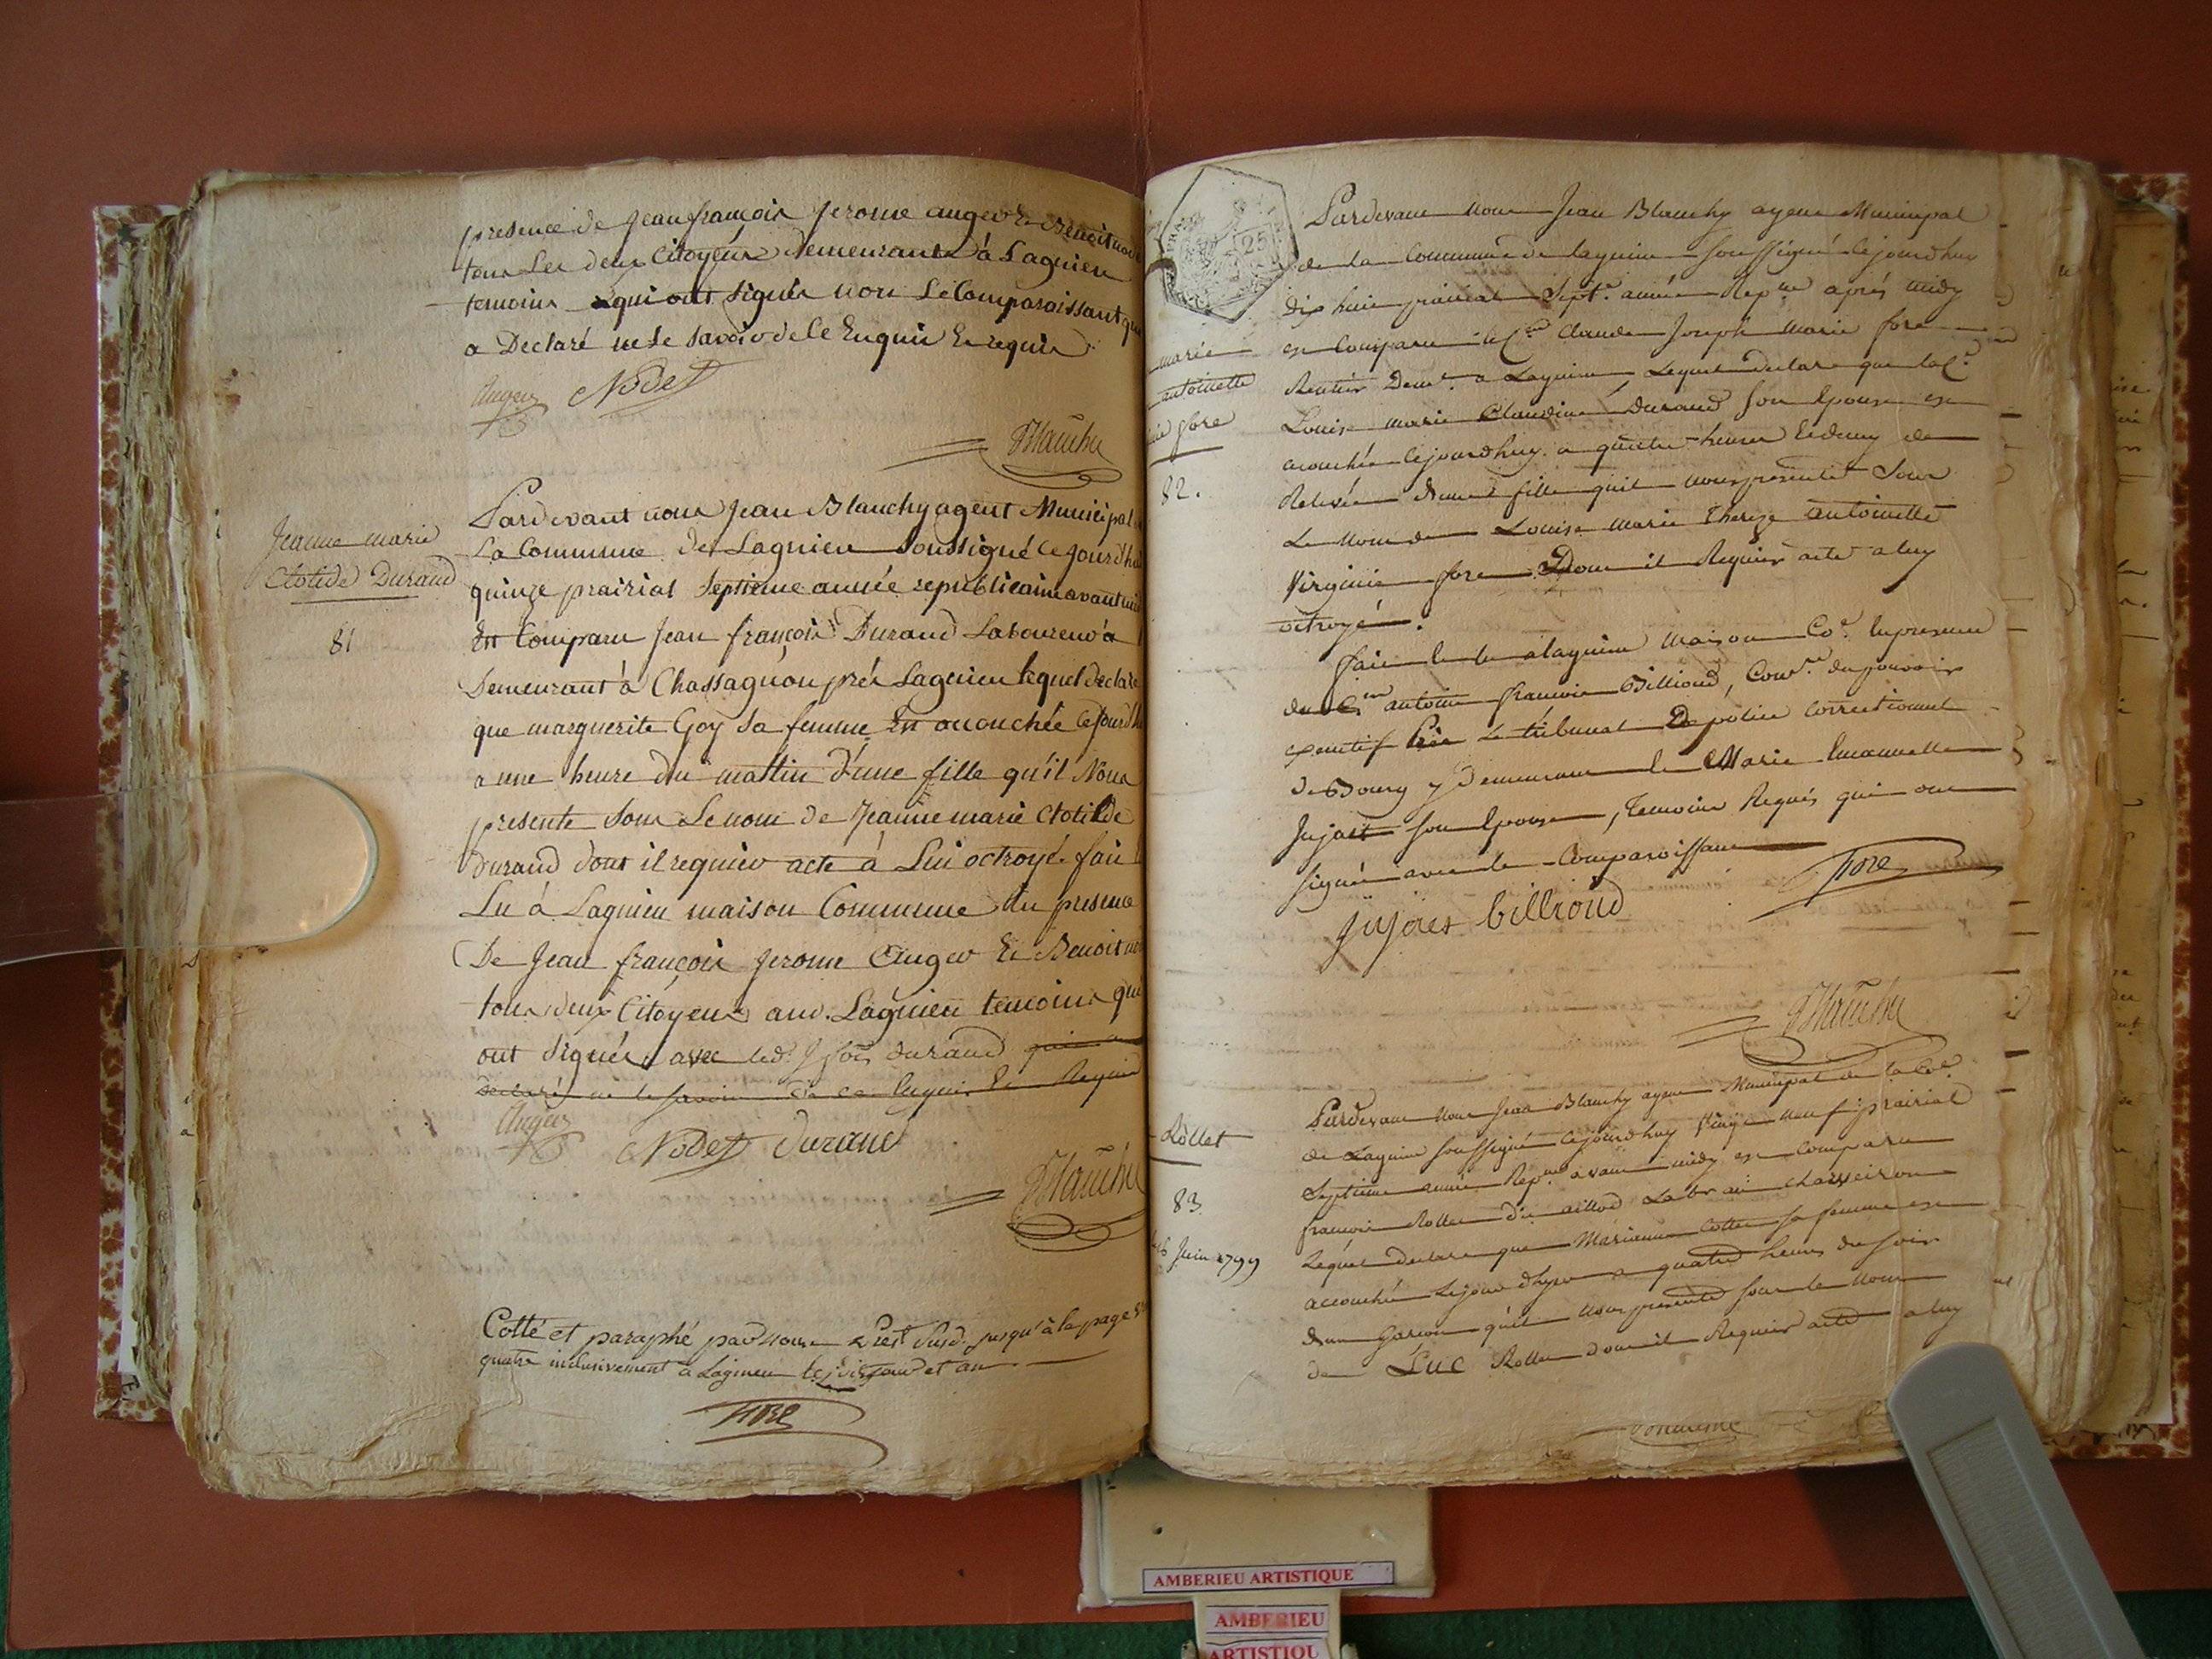 presence de Jean françois Jerome auger Et Benoit
tous Les deux Citoyens demeurants à Lagnieu
temoins qui ont signés non Le Comparaissant qui
a Declaré ne le savoir de ce Enquis Et requis
Auger Nodet
Blanchy
Jeanne marie
Clotilde Durand
81
Pardevant nous Jean Blanchy agent Municipal
La Commune de Lagnieu soussigné ce jourd'hui
quinze prairial septieme année republicaine avant
Est Comparu Jean françois Durand Laboureur à
Demeurant à Chassagnon près Lagnieu lequel declare
que marguerite Goy sa femme Est acouchée ce jourd'h
a une heure du mattin d'une fille qu'il Nous
presente sous Le nom de Jeanne marie Clotilde
Durand dont il requier acte à Lui octroyé. fait
Lu à Lagnieu maison Commune En presence
De Jean françois Jerome Auger Et Benoit
tous deux Citoyens aud. Lagnieu temoins qui
ont signés avec led. J fois durand
declaré ne le savoir de ce Enquis Et Requis
Auger
Nodet Durand
Blanchy
Cotté et paraphé par nous jusqu'à la page
quatre inclusivement à Lagnieu les jour et an
fore
25
marie
antoinette
fore
82.
Pardevant Nous Jean Blanchy agent Municipal
de la Commune de Lagnieu soussigné Cejourdhuy
dix huit prairial Septe. année Repne après midy
est Comparu le Cen Claude Joseph Marie fore
Rentier Demt. a Lagnieu, Lequel declare que la Ce.
Louise marie Claudine Durand son Epouse est
acouchée Cejourdhuy a quatre heures Et demy de
Relevée d'une fille quil nous presente Sous
Le Nom de Louise marie Thereze antoinette
Virginie fore Dont il Requier acte a luy
octroyé.
fait Et lu a lagnieu Maison Coe. En presence
du Cen antoine francois Billioud, Comre du pouvoir
executif près Le tribunal De police Correctionnel
de Bourg y Demeurant Et Marie Emanuelle
Jujast son Epouse, Temoins Requis qui ont
signé avec le Comparoissant
fore
jujast billioud
Blanchy
Rollet
83
Juin 1799
Pardevant Nous Jean Blanchy agent Municipal de la Coe.
de Lagnieu soussigné Cejourdhuy Vingt neuf prairial
Septieme année Repe. avant midy est Comparu
francois Rollet dit
Lequel declare que Marianne Cottin sa femme est
accouchée Lejour dhyer a quatre heures du soir
d'un Garcon qu'il nous presente sous le Nom
de Luc Rollet dont il Requier acte a luy
AMBERIEU ARTISTIQUE
AMBERIEU
ARTISTIQU